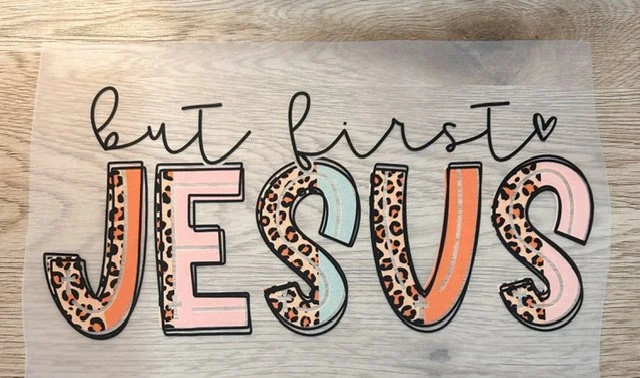 but first
JESUS